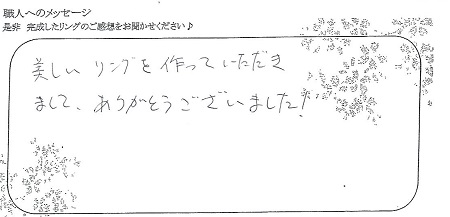 職人へのメッセージ
是非 完成したリングのご感想をお聞かせください♪
美しい リングを 作っていただき
まして、ありがとうございました!